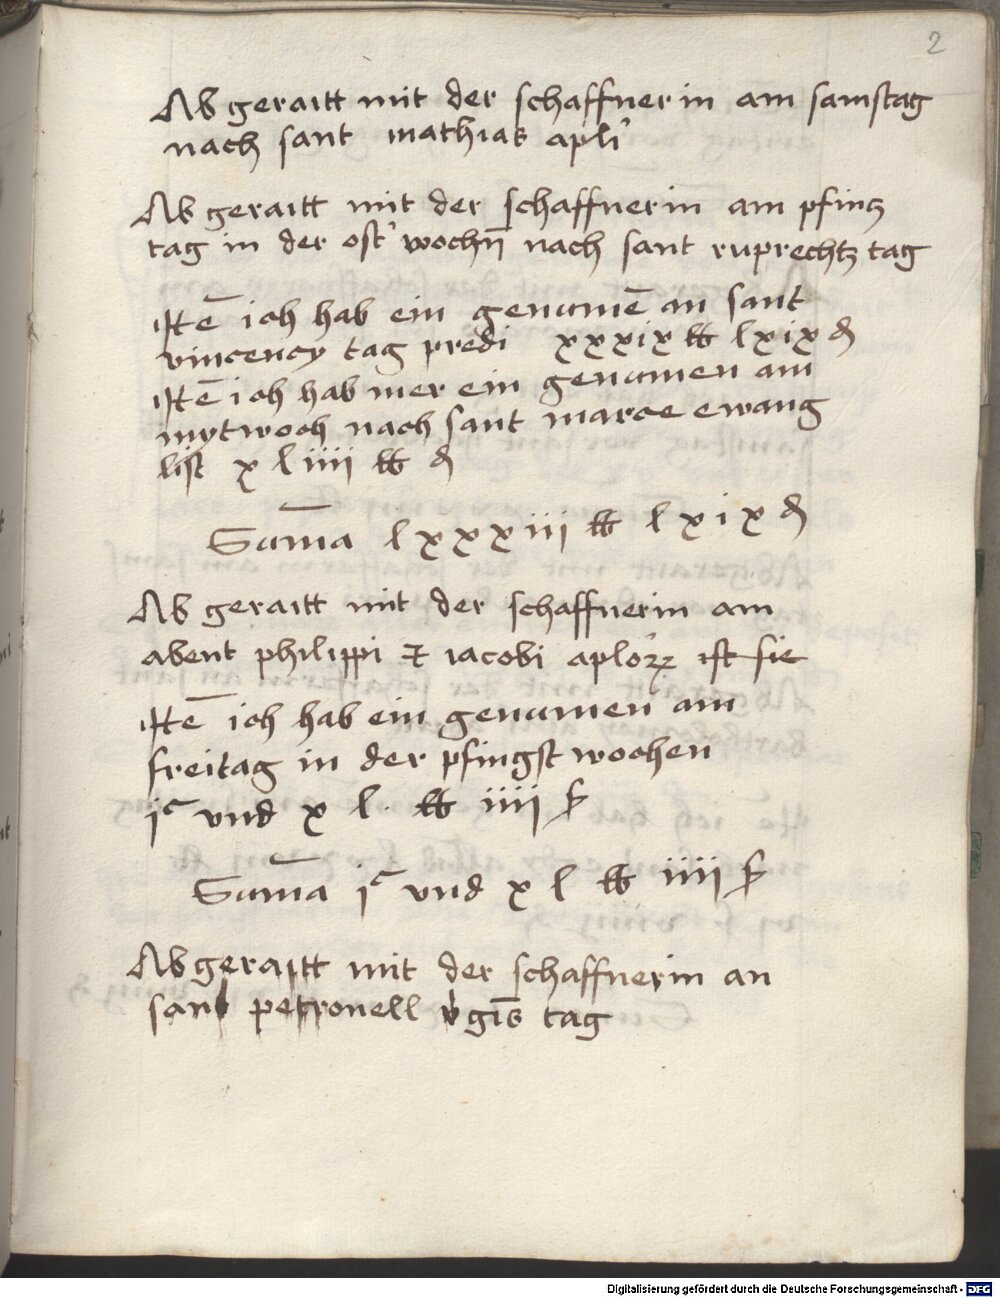 2
Ab geraitt mit der schaffnerin am samstag
nach sant mathias apli
Ab geraitt mit der schaffnerin am pfincz
tag in der ost' wochn̄ nach sant ruprechtz tag
Itē ich hab ein genumē an sant
vincency tag predi xxxix ℔ lxix ₰
Itē ich hab mer ein genumen am
mytwoch nach sant marce ewang
list xliiii ℔ ₰
Sum̄a lxxxiii ℔ lxix ₰
Ab geraitt mit der schaffnerin am
abent philippi et iacobi aplorꝝ ist sie
Itē ich hab ein genumen am
freitag in der pfingst wochen
iᶜ und xl ℔ iiii ß
Sum̄a iᶜ und xl ℔ iiii ß
Ab geraitt mit der schaffnerin an
sant petronell v̓gīs tag
Digitalisierung gefördert durch die Deutsche Forschungsgemeinschaft - DFG